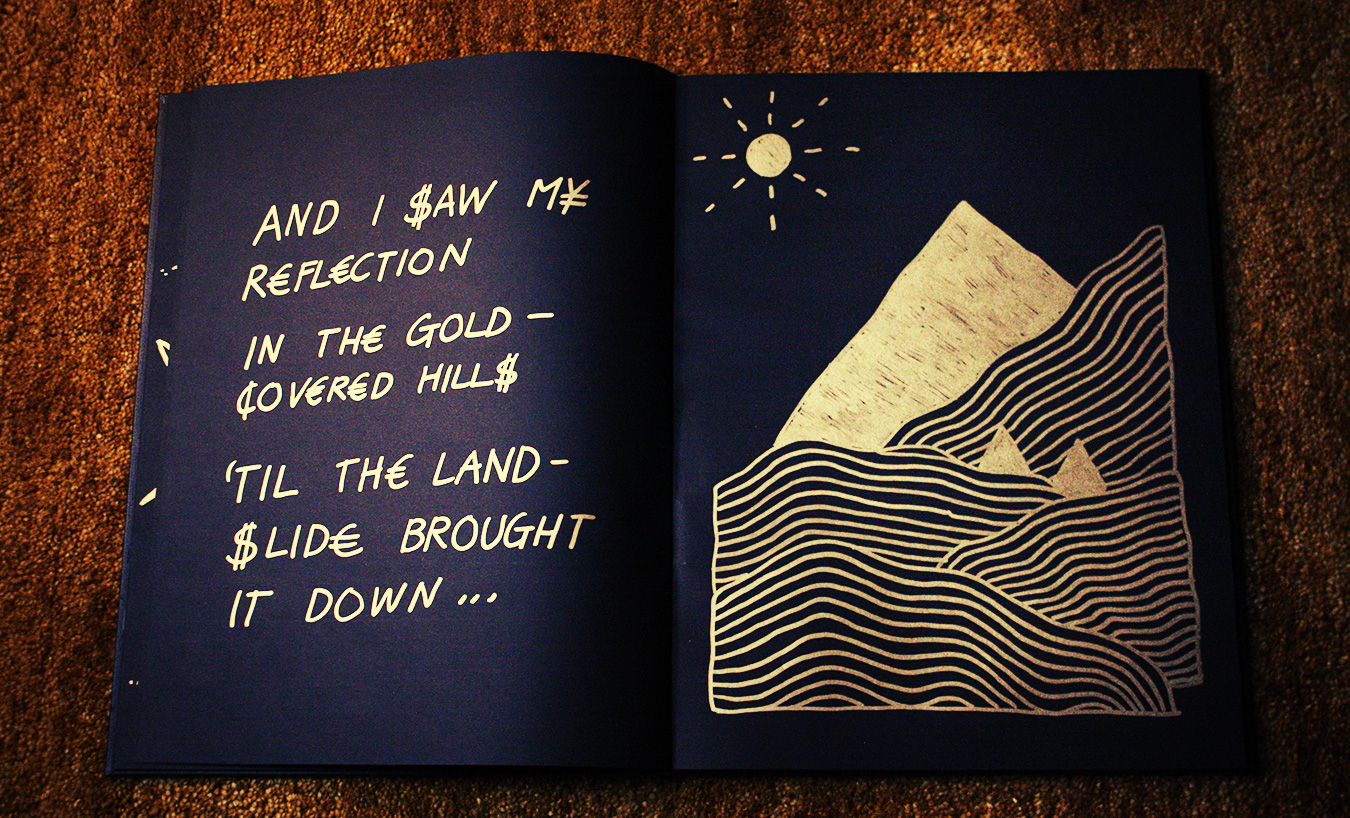 AND I $AW M¥
R€FL€CTION
IN TH€ GOLD –
₵OV€R€D HILL$
'TIL TH€ LAND –
$LID€ BROUGHT
IT DOWN ...